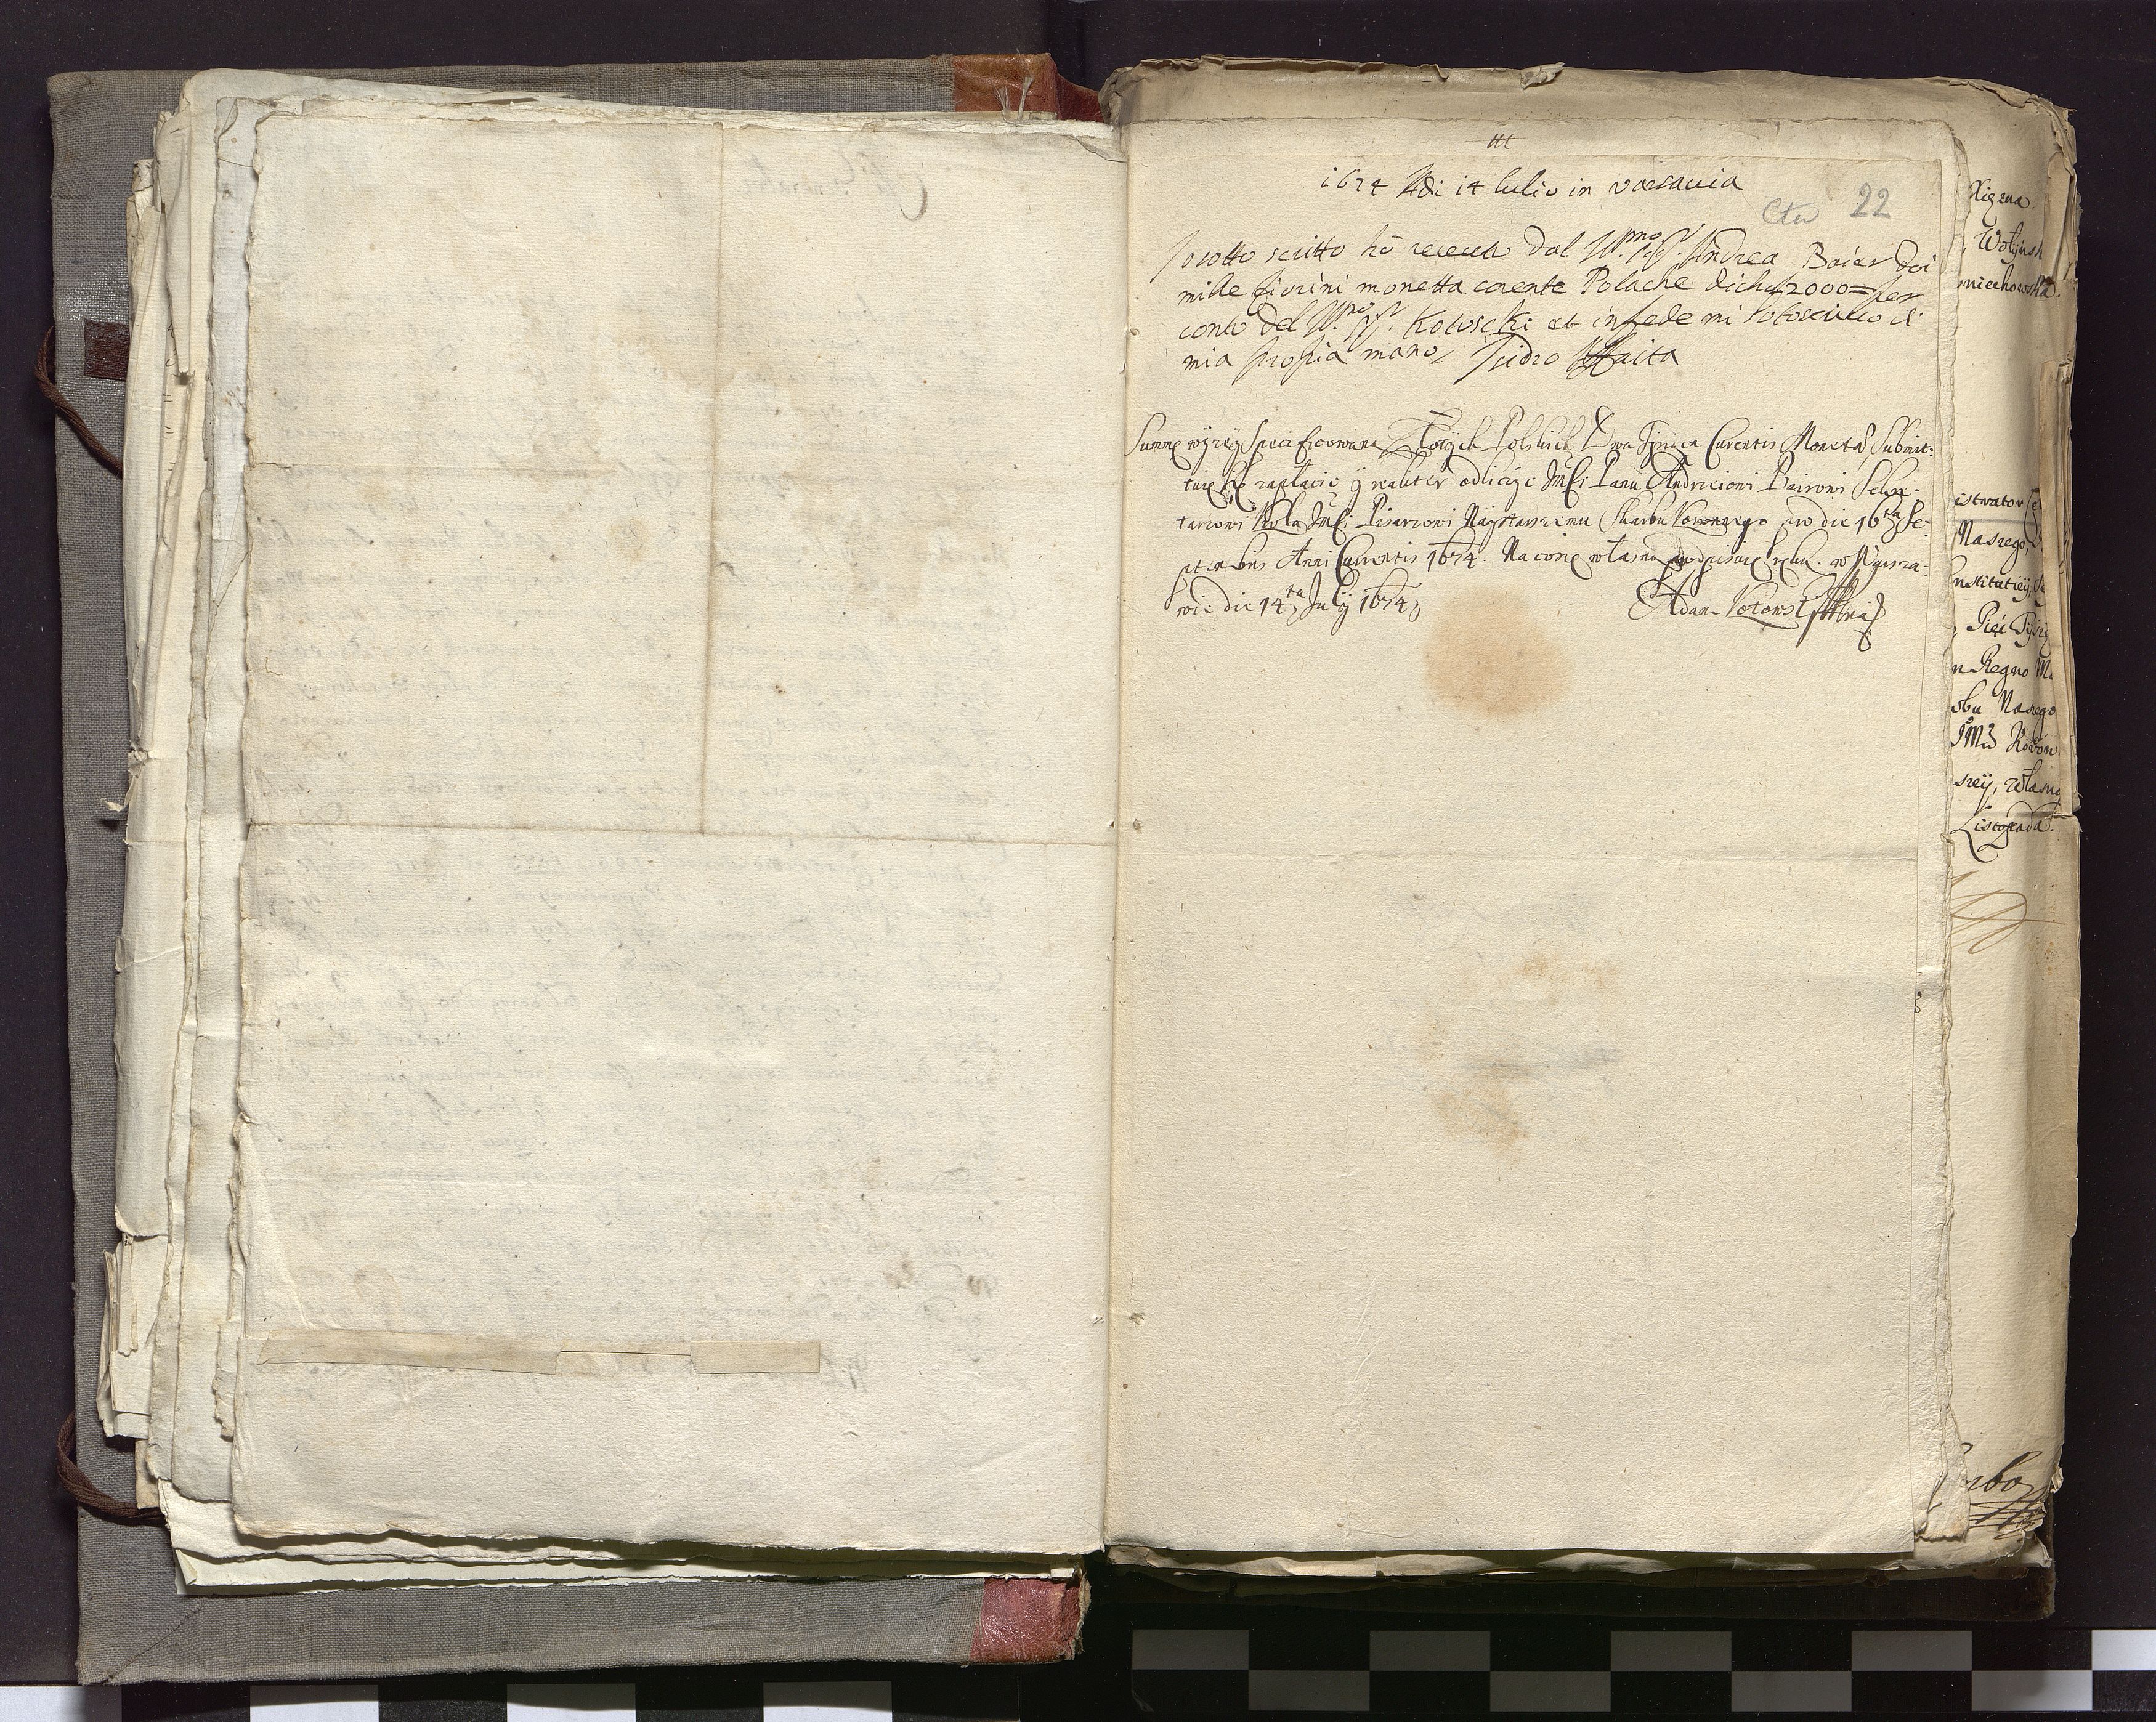 1674 Adi 14 Iulio in varsauia
22
Io sotto scritto hò receuto dal Ill.mo Sig.r Andrea Baier doi
mille fiorini monetta corente Polache dicho f 2000= per
conto del Ill.mo Sig.r Kotoscki et in fede mi sotoscriuo di
mia propia mano, Isidro Affaita
Summę wyżey specificowaną Złotych Polskich Dwa Tysiąca Currentis Monetæ, submit-
tuię się zapłacić y realiter odliczyć Jmści Panu Andrzeiowi Baierowi Sekre-
tarzowi Krola Jmści Pisarzowi Naystarszemu Skarbu Koronnego pro die 16ta Se-
ptembris Anni Currentis 1674. Na co się własną podpisuię ręką. w Warsza-
wie die 14ta July 1674
Adam Kotowski
Xigzna
Wołynsk
miechowska.
istrator
Naszego
nstitutiey
Pięć Tysię
n Regno
rbu Naszego
JMci Koron
szey, własną
Listopada.